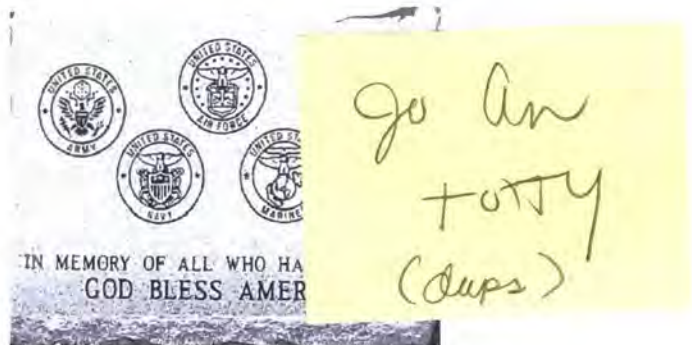 UNITED STATES
ARMY
UNITED STATES
AIR FORCE
UNITED STATES
NAVY
UNITED ST
MARINE
IN MEMORY OF ALL WHO HA
GOD BLESS AMER
Jo An
Totty
(dups)